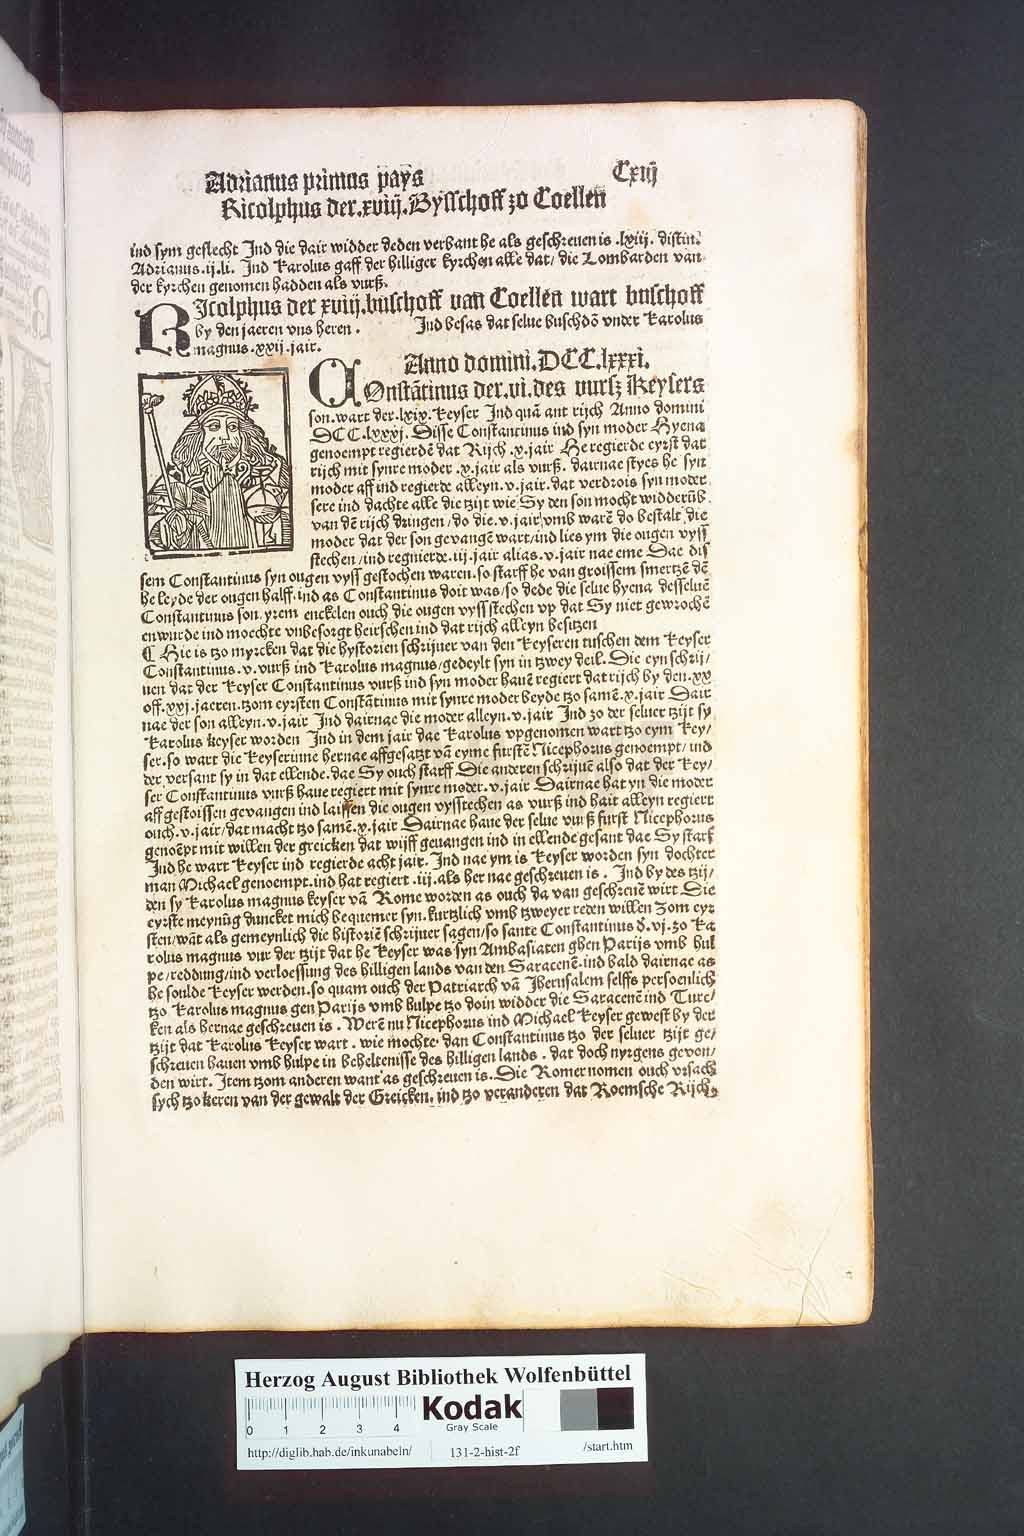 Adrianus primus pays Cxiij
Ricolphus der .xviij. Bysschoff zo Coellen
ind sym geslecht Ind die dair widder deden verbant he als geschreuen is .lxiij. distin.
Adrianus .ij. li. Ind Karolus gaff der hilliger kyrchen alle dat/ die Lombarden van
der kyrchen genomen hadden als vurß.
RIcolphus der xviij. buschoff van Coellen wart buschoff
by den jaeren vns heren . Ind besas dat selue buschdō vnder Karolus
magnus .xxij. jair.
Anno domini. DCC. lxxxi.
COnstātinus der .vi. des vurß Keysers
son. wart der .lxix. Keyser Ind quā ant rijch Anno domini
DCC. lxxxj. Disse Constantinus ind syn moder Hyena
genoempt regierdē dat Rijch .x. jair He regierde eyrst dat
rijch mit synre moder .x. jair als vurß. dairnae styes he syn
moder aff ind regierde alleyn .v. jair. dat verdrois syn moder
sere ind dachte alle die tzijt wie Sy den son mocht widderūb
van dē rijch dringen/ do die .v. jair vmb warē do bestalt die
moder dat der son gevangē wart/ ind lies ym die ougen vyss
stechen/ ind regnierde .iij. jair alias .v. jair nae eme Dae dis
sem Constantinus syn ougen vyss gestochen waren. so starff he van groissem smertzē dē
he leyde der ougen halff. ind as Constantinus doit was/ so dede die selue hyena desseluē
Constantinus son. yrem enckelen ouch die ougen vyss stechen vp dat Sy niet gewrochē
en wurde ind moechte vnbesorgt heirschen ind dat rijch alleyn besitzen
¶ Hie is tzo myrcken dat die hystorien schrijuer van den Keyseren tuschen dem Keyser
Constantinus .v. vurß ind Karolus magnus/ gedeylt syn in tzwey deil. Die eyn schrij/
uen dat der Keyser Constantinus vurß ind syn moder hauē regiert dat rijch by den .xx
off .xxj. jaeren. tzom eyrsten Constātinus mit synre moder beyde tzo samē .x. jair Dair
nae der son alleyn .v. jair Ind dairnae die moder alleyn .v. jair Ind zo der seluer tzijt sy
Karolus keyser worden Ind in dem jair dae Karolus vpgenomen wart tzo eym Key/
ser. so wart die Keyserinne hernae affgesatzt vā eyme furstē Nicephorus genoempt/ ind
der versant sy in dat ellende. dae Sy ouch starff Die anderen schrijuē also dat der Key/
ser Constantinus vurß haue regiert mit synre moder .v. jair Dairnae hat yn die moder
aff gestoissen gevangen ind laissen die ougen vysstechen as vurß ind hait alleyn regiert
ouch .v. jair/ dat macht tzo samē .x. jair Dairnae haue der selue vurß furst Nicephorus
genoēpt mit willen der greicken dat wijff geuangen ind in ellende gesant dae Sy starf
Ind he wart Keyser ind regierde acht jair. Ind nae ym is Keyser worden syn dochter
man Michael genoempt. ind hat regiert .iij. als her nae geschreuen is . Ind by des tzij/
den sy Karolus magnus keyser vā Rome worden as ouch da van geschreuē wirt Die
eyrste meynūg duncket mich bequemer syn. kurtzlich vmb tzweyer reden willen Zom eyr
sten/ wāt als gemeynlich die historiē schrijuer sagen/ so sante Constantinus d. vj. zo Ka
rolus magnus vur der tzijt dat he Keyser was syn Ambasiaten ghen Parijs vmb hul
pe/ reddung/ ind verloessung des hilligen lands van den Saracenē. ind bald dairnae as
he soulde Keyser werden. so quam ouch der Patriarch vā Jherusalem selffs persoenlich
tzo Karolus magnus gen Parijs vmb hulpe tzo doin widder die Saracenē ind Ture/
ken als hernae geschreuen is . Werē nu Nicephorus ind Michael Keyser gewest by der
tzijt dat Karolus Keyser wart . wie mochte dan Constantinus tzo der seluer tzijt ge/
schreuen hauen vmb hulpe in beheltenisse des hilligen lands . dat doch nyrgens gevon/
den wirt. Item tzom anderen want as geschreuen is. Die Romer nomen ouch vrsach
sych tzo keren van der gewalt der Greicken. ind tzo veranderen dat Roemsche Rijch
Herzog August Bibliothek Wolfenbüttel
0 1 2 3 4
Kodak
Gray Scale
http://diglib.hab.de/inkunabeln/ 131-2-hist-2f /start.htm